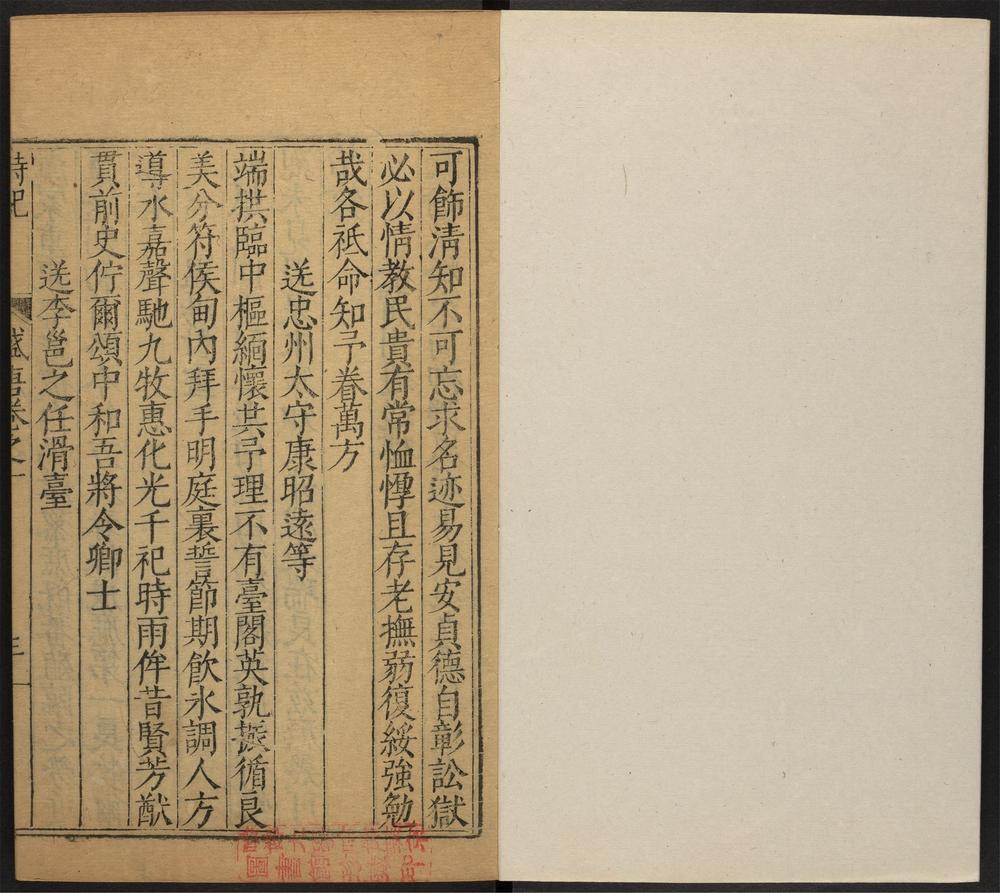 可飾清知不可忘求名迹易見安貞德自彰訟獄
必以情教民貴有常恤惸且存老撫弱復綏強勉
哉各祗命知予眷萬方
送忠州太守康昭遠等
端拱臨中樞緬懷共予理不有臺閣英孰振循良
美分符侯甸內拜手明庭裏誓節期飲氷調人方
導水嘉聲馳九牧惠化光千祀時雨侔昔賢芳猷
貫前史佇爾頌中和吾將令卿士
送李邕之任滑臺
詩紀 盛唐卷之一